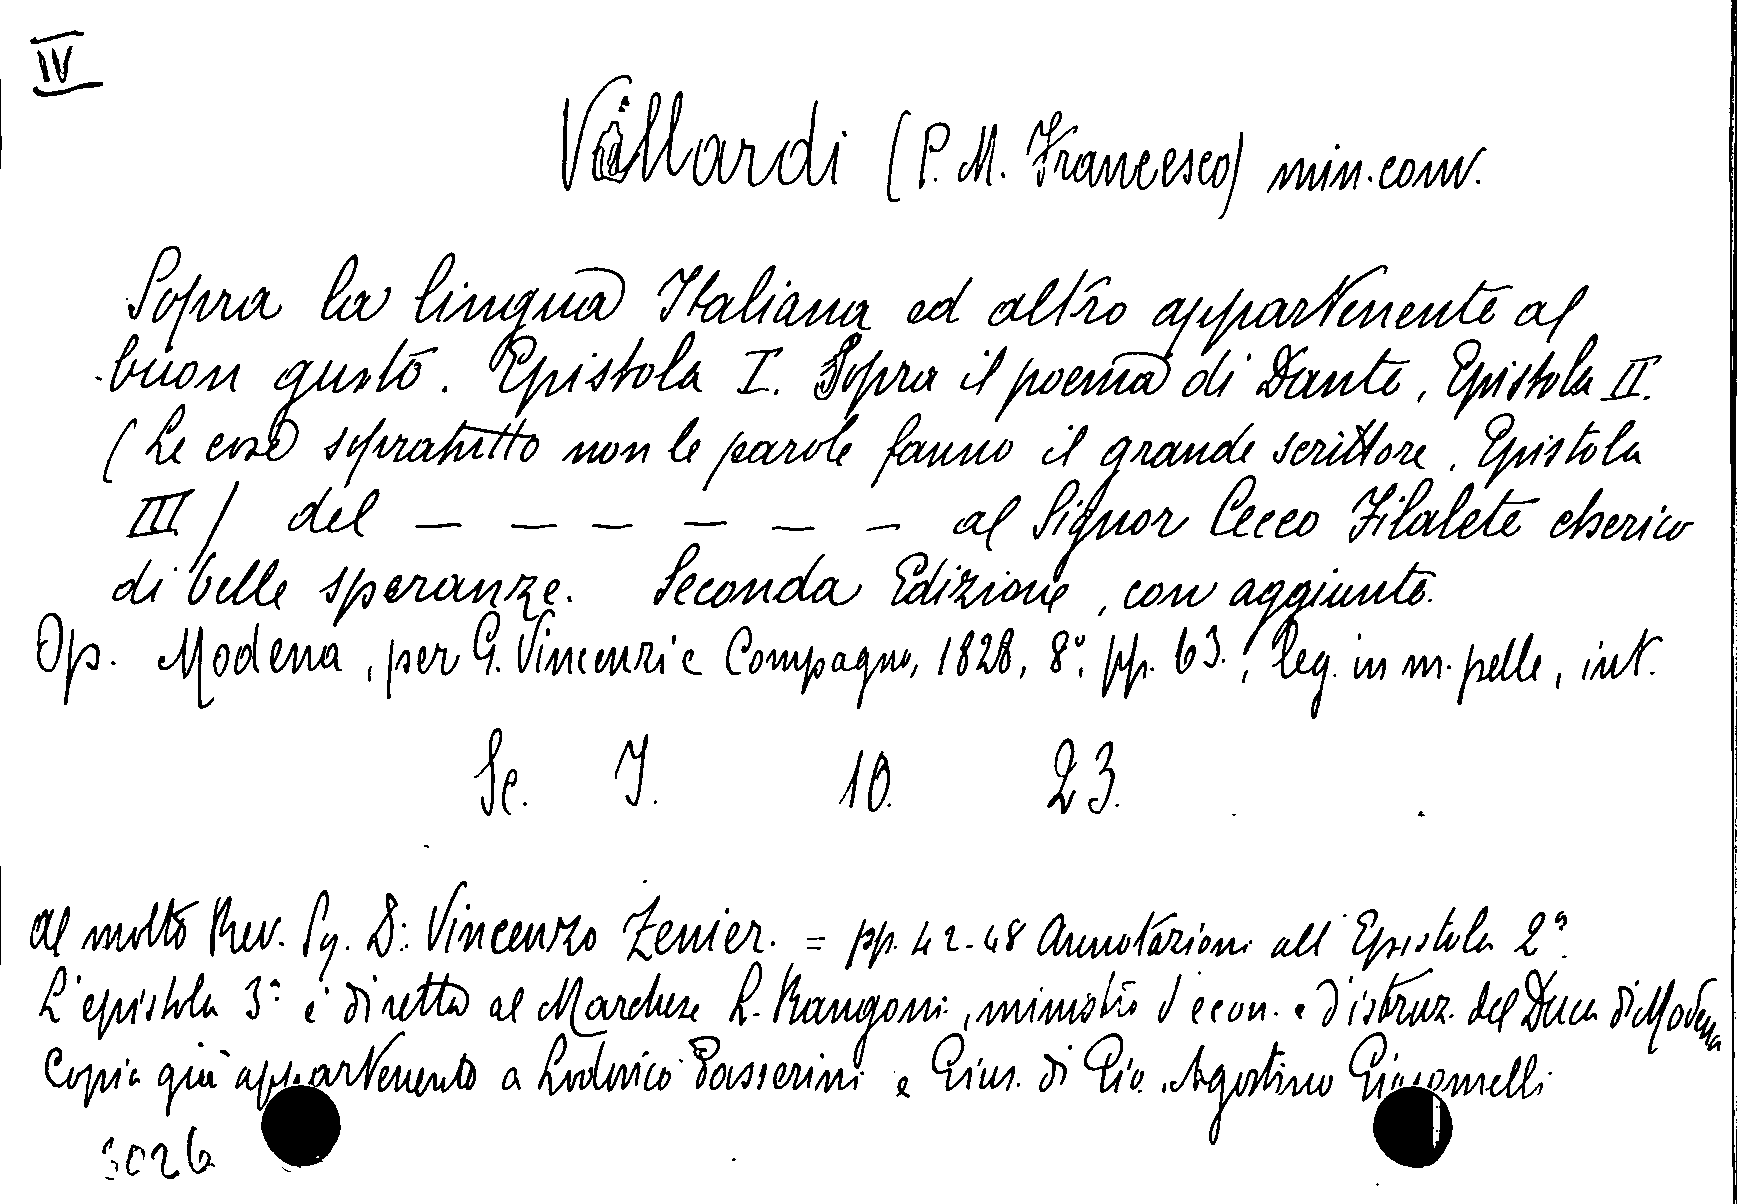 IV
Villardi (P. M. Francesco) min. conv.
Sopra la lingua Italiana ed altro appartenente al
buon gusto. Epistola I. Sopra il poema di Dante, Epistola II.
(Le cose sopratutto non le parole fanno il grande scrittore, Epistola
III) del — — — — — — al Signor Cecco Filalete cherico
di belle speranze. Seconda Edizione, con aggiunte.
Op. Modena, per G. Vincenzi e Compagno, 1828, 8°, pp. 63., leg. in m. pelle, int.
Sc. I. 10. 23.
Al molto Rev. Sg. D: Vincenzo Zenier. = pp. 42-48 Annotazioni all Epistola 2ª
L'epistola 3ª è diretta al Marchese L. Rangoni, ministro d'econ. e d'istruz. del Duca di Modena
Copia già appartenente a Lodovico Passerini e Gius. di Gio. Agostino Giacomelli
3026